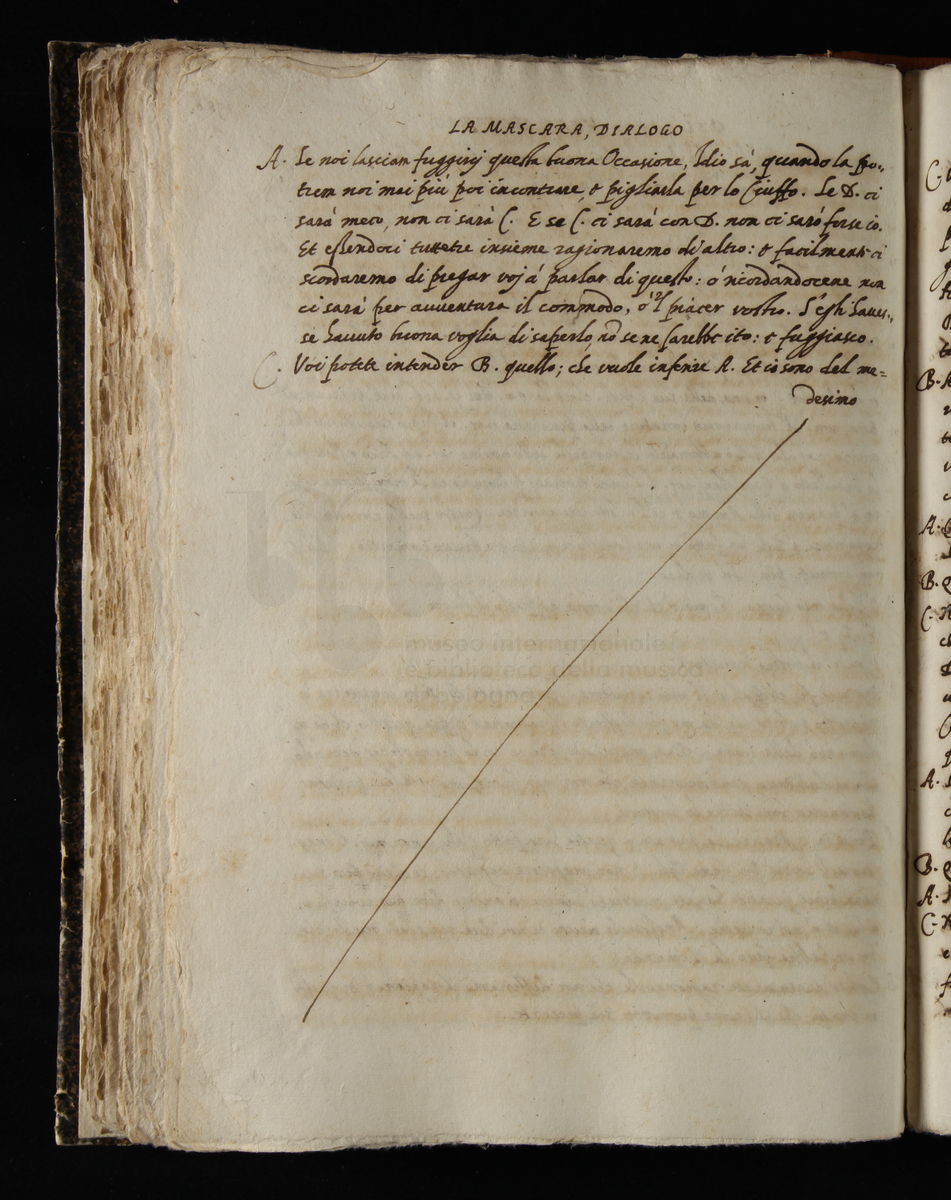 LA MASCARA, DIALOGO
A. Se noi lasciam fuggirci questa buona Occasione, Idio sà, quando la po-
trem noi mai più poi incontrare, e pigliarla per lo Ciuffo. Se D. ci
sarà meco, non ci sarà C. E se C. ci sarà con D. non ci sarò forse io.
Et essendoci tuttetre insieme ragionaremo di altro: e facilmente ci
scordaremo di pregar voj à parlar di questo: ò ricordandocene non
ci sarà per avventura il commodo, ò 'l piacer vostro. S'egli haves-
se havuto buona voglia di saperlo nõ se ne sarebbe ito: e fuggiasco.
C. Voi potete intender B. quello; che vuole inferire A. Et io sono del me=
desimo
museo internazionale
e biblioteca della musica
di bologna